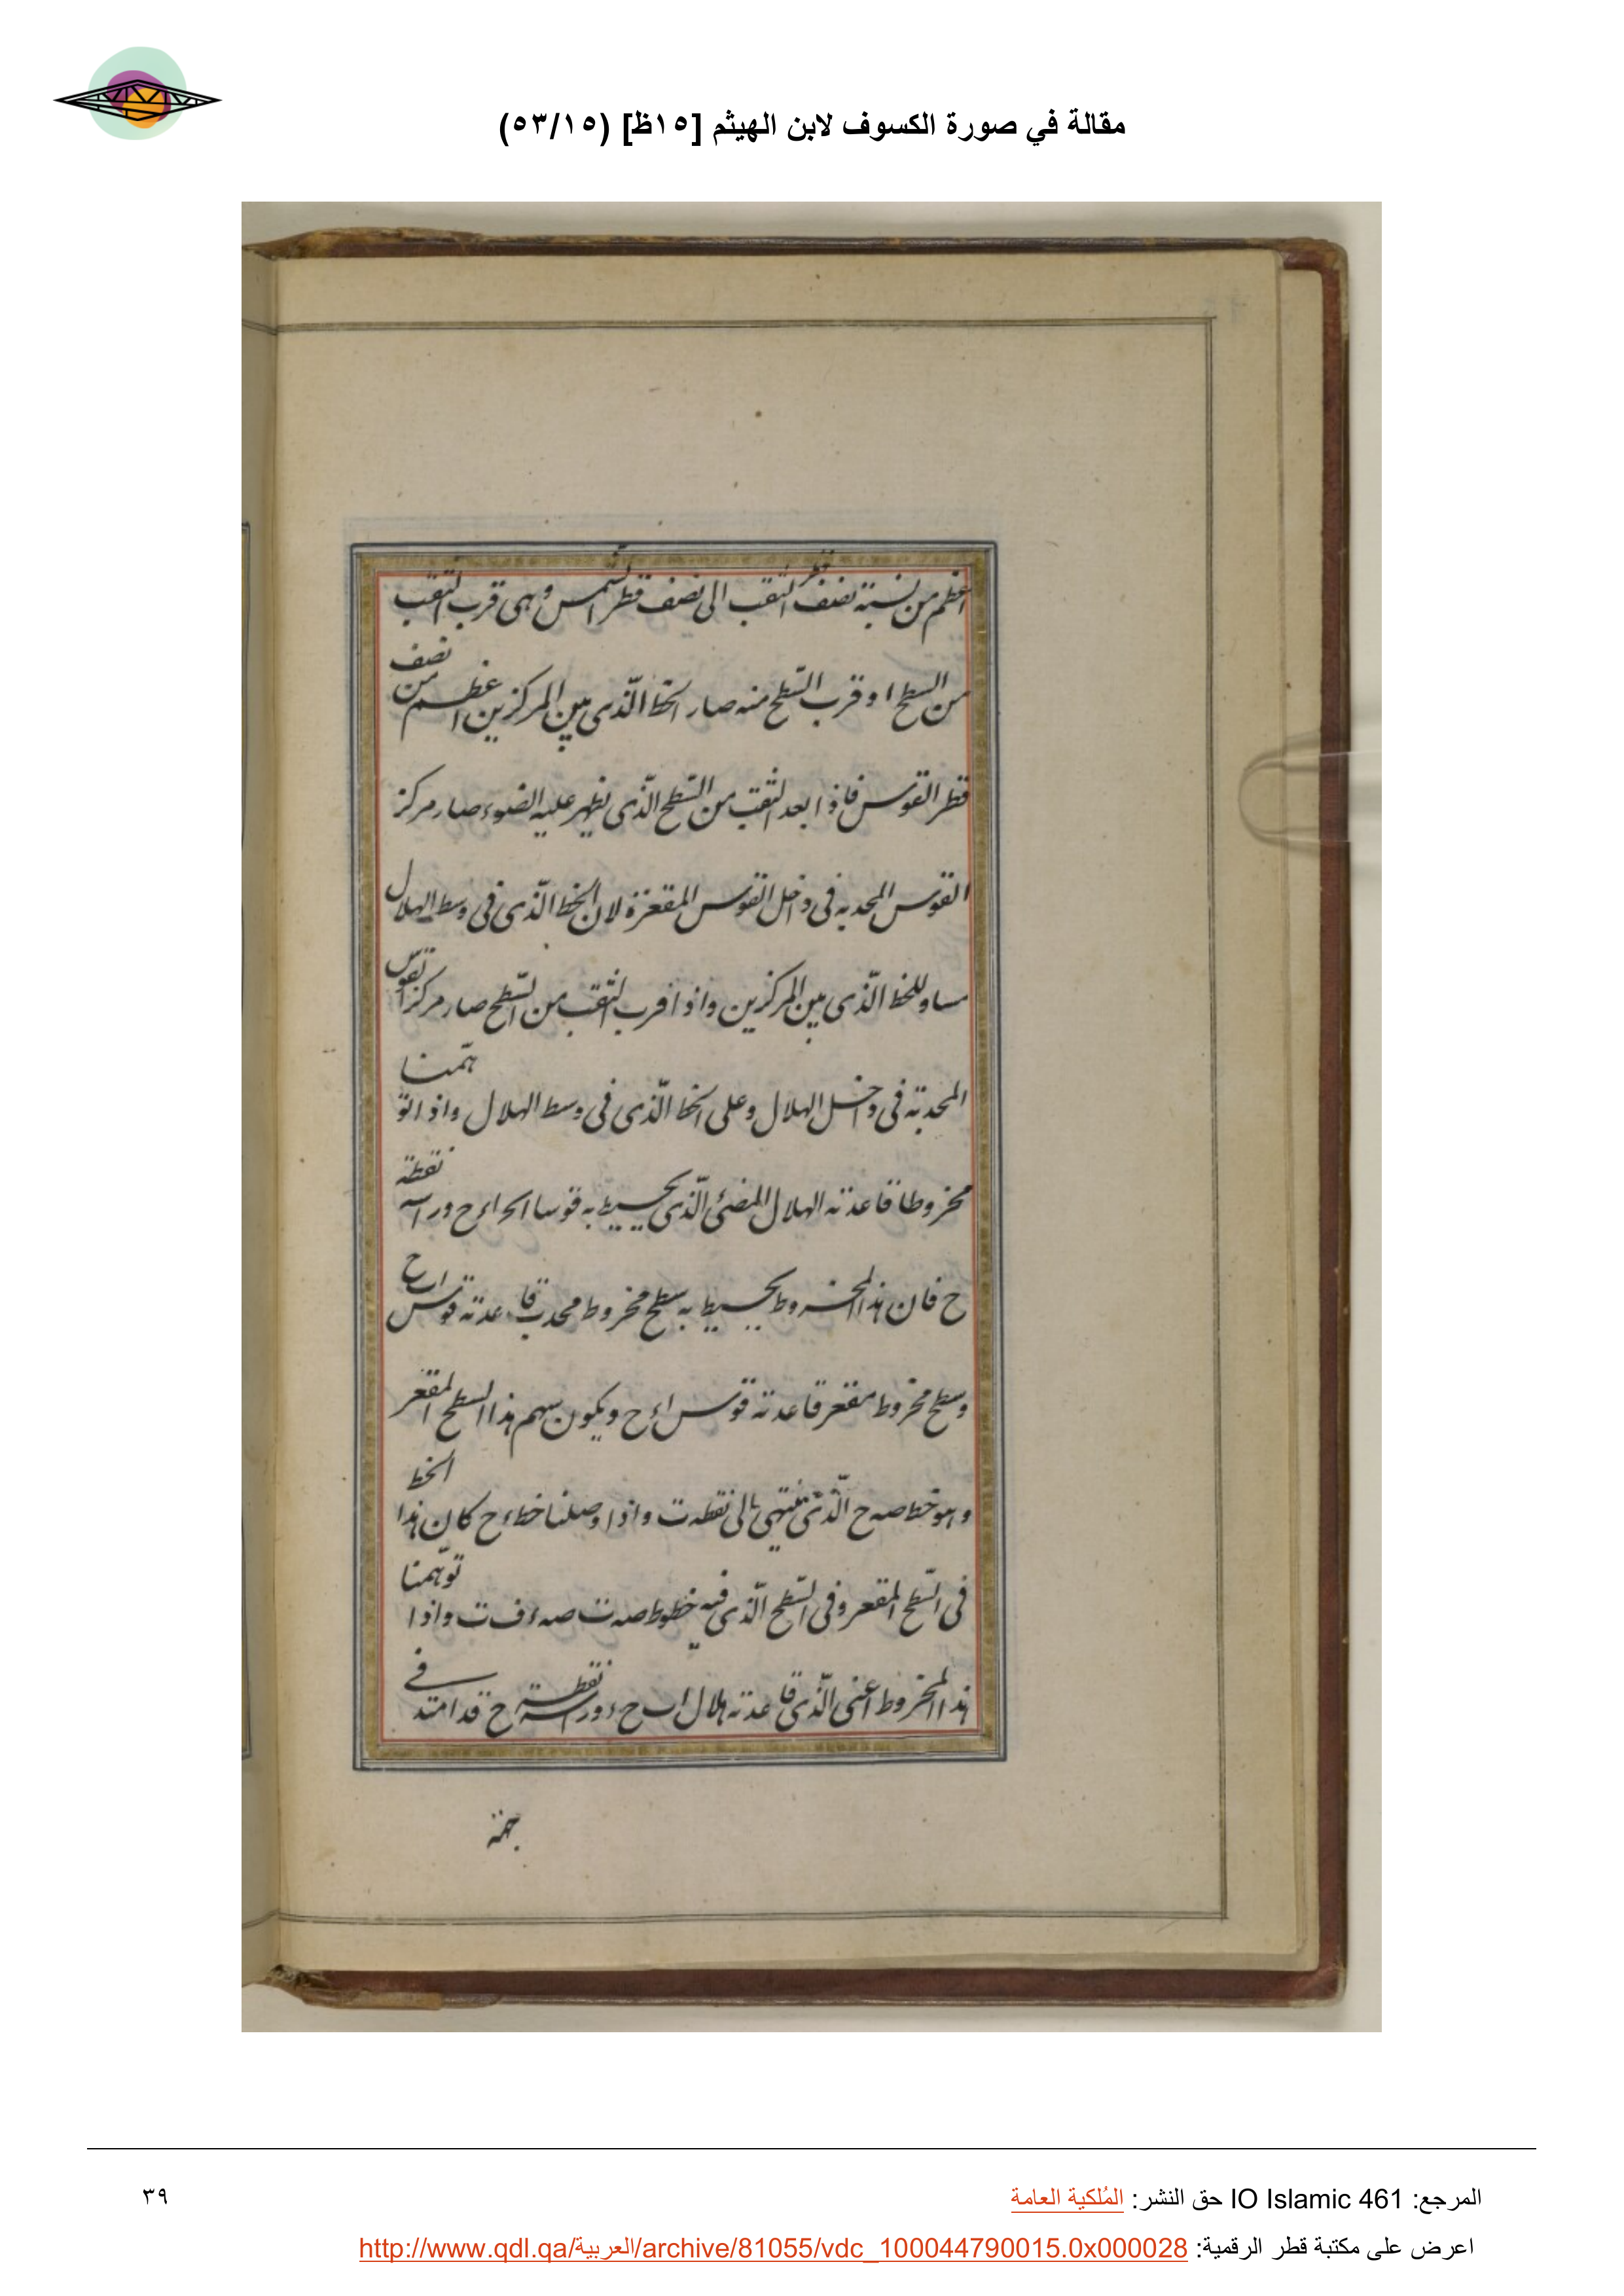 مقالة في صورة الكسوف لابن الهيثم [١٥ظ] (٥٣/١٥)
اعظم من نسبة نصف قطر الثقب الى نصف قطر الشمس وهى قرب الثقب
من السطح او قرب السطح منه صار الخط الذى بين المركزين اعظم من نصف
قطر القوس فاذا بعد الثقب من السطح الذى يظهر عليه الضوء صار مركز
القوس المحدبه فى داخل القوس المقعرة لان الخط الذى فى وسط الهلال
مساو للخط الذى بين المركزين واذا قرب الثقب من السطح صار مركز القوس
المحدبة فى داخل الهلال وعلى الخط الذى فى وسط الهلال واذا توهمنا
مخروطا قاعدته الهلال المضئ الذى يحيط به قوسا ورأسه نقطة
ح فان هذا المخروط يحيط به سطح مخروط محدب قاعدته قوس
وسطح مخروط مقعر قاعدته قوس اءح ويكون سهم هذا السطح المقعر
وهو خط صه ح الذى ينتهى الى نقطه ت واذا وصلنا خط ءح كان هذا الخط
فى السطح المقعر وفى السطح الذى فيه خطوط صه ت صه ء ف ت واذا توهمنا
هذا المخروط اعنى الذى قاعدته هلال ورأسه نقطة ح قد امتد فى
جهة
المرجع: IO Islamic 461 حق النشر: المُلكية العامة
٣٩
اعرض على مكتبة قطر الرقمية: http://www.qdl.qa/العربية/archive/81055/vdc_100044790015.0x000028